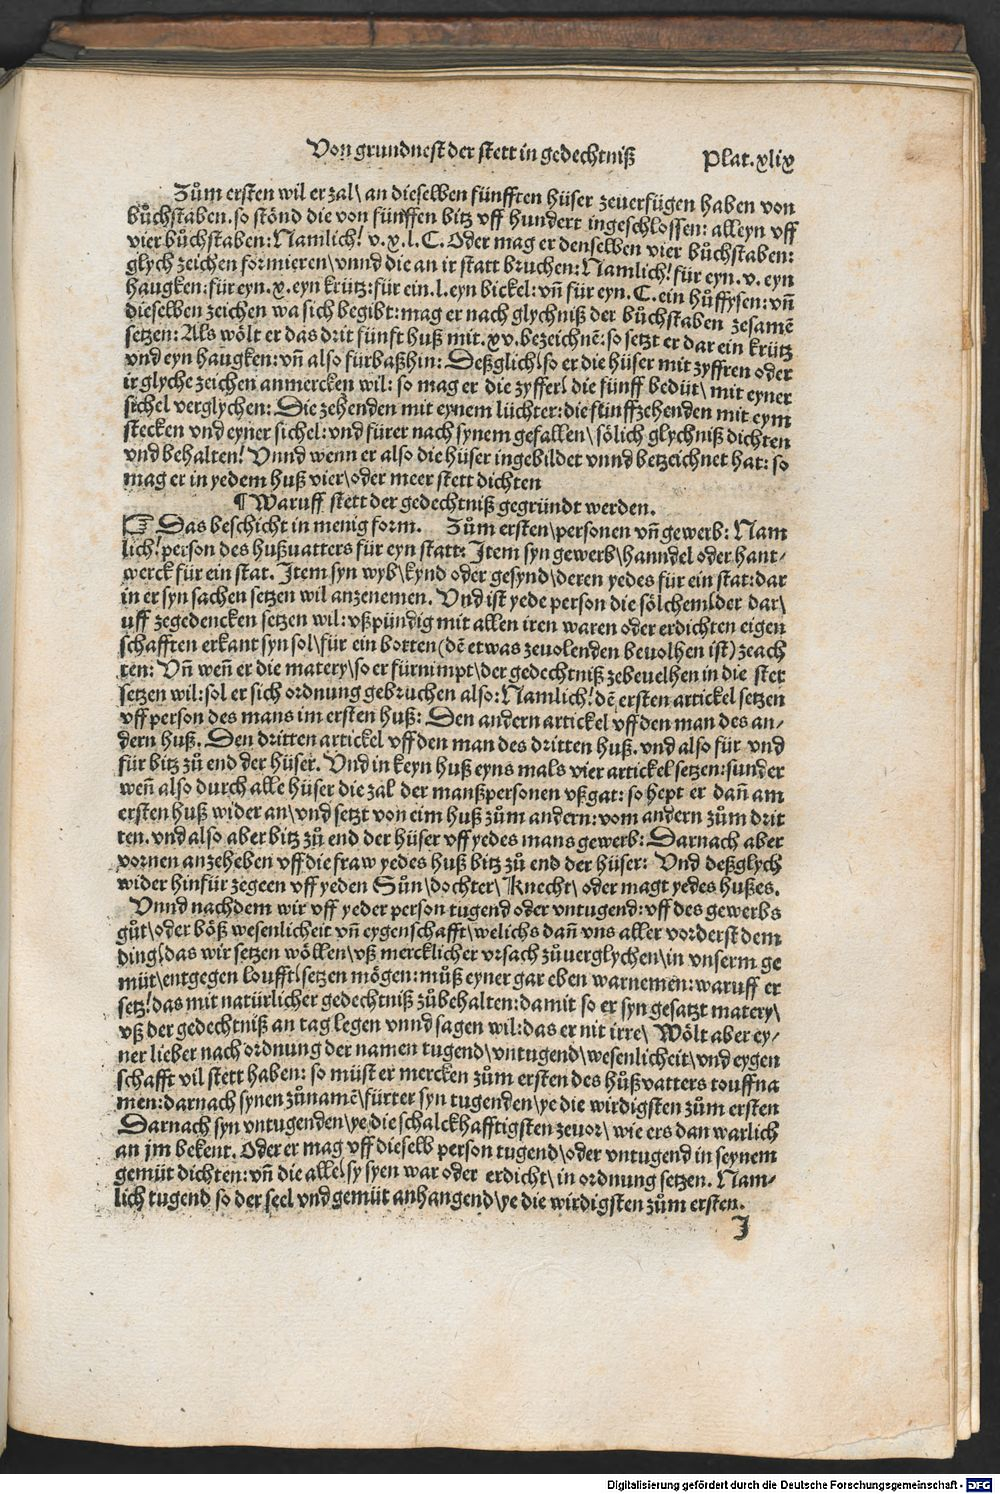 Von grundnest der stett in gedechtniß Plat. xlix
Zům ersten wil er zal\ an dieselben fünfften hüser zeuerfügen haben von
bůchstaben. so stönd die von fünffen bitz vff hundert ingeschlossen: alleyn vff
vier bůchstaben: Namlich! v. x. l. C. Oder mag er denselben vier bůchstaben:
glych zeichen formieren\ vnnd die an ir statt bruchen: Namlich! für eyn. v. eyn
haugken: für eyn. x. eyn krütz: für ein. l. eyn bickel: vñ für eyn. C. ein hůffysen: vñ
dieselben zeichen wa sich begibt: mag er nach glychniß der bůchstaben zesamẽ
setzen: Als wölt er das drit fünft huß mit. xv. bezeichnẽ: so setzt er dar ein krütz
vnd eyn haugken: vñ also fürbaßhin: Deßglich\ so er die hüser mit zyffren oder
ir glyche zeichen anmercken wil: so mag er die zyffer\ die fünff bedüt\ mit eyner
sichel verglychen: Die zehenden mit eynem lüchter: die fünffzehenden mit eym
stecken vnd eyner sichel: vnd fürer nach synem gefallen\ sölich glychniß dichten
vnd behalten! Vnnd wenn er also die hüser ingebildet vnnd betzeichnet hat: so
mag er in yedem huß vier\ oder meer stett dichten
¶ Waruff stett der gedechtniß gegründt werden.
☞ Das beschicht in menig form. Zům ersten\ personen vñ gewerb: Nam
lich! person des hußuatters für eyn statt: Item syn gewerb\ hanndel oder hant-
werck für ein stat. Item syn wyb\ kynd oder gesynd\ deren yedes für ein stat: dar
in er syn sachen setzen wil anzenemen. Vnd ist yede person die sölchem\ der dar\
uff zegedencken setzen wil: vßpündig mit allen iren waren oder erdichten eigen
schafften erkant syn sol\ für ein botten (dẽ etwas zeuolenden beuolhen ist) zeach
ten: Vñ weñ er die matery\ so er fürnimpt\ der gedechtniß zebeuelhen in die stet
setzen wil: sol er sich ordnung gebruchen also: Namlich! dẽ ersten artickel setzen
vff person des mans im ersten huß: Den andern artickel vff den man des an-
dern huß. Den dritten artickel vff den man des dritten huß. vnd also für vnd
für bitz zů end der hüser. Vnd in keyn huß eyns mals vier artickel setzen: sunder
weñ also durch alle hüser die zal der manßpersonen vßgat: so hept er dañ am
ersten huß wider an\ vnd setzt von eim huß zům andern: vom andern zům drit
ten. vnd also aber bitz zů end der hüser vff yedes mans gewerb: Darnach aber
vornen anzeheben vff die fraw yedes huß bitz zů end der hüser: Vnd deßglych
wider hinfür zegeen vff yeden Sůn\ dochter\ Knecht\ oder magt yedes hußes.
Vnnd nachdem wir vff yeder person tugend oder vntugend: vff des gewerbs
gůt\ oder böß wesenlicheit vñ eygenschafft\ welichs dañ vns aller vorderst dem
ding\ das wir setzen wöllen\ vß mercklicher vrsach zůuerglychen\ in vnserm ge
müt\ entgegen loufft\ setzen mögen: můß eyner gar eben warnemen: waruff er
setz! das mit natürlicher gedechtniß zůbehalten: damit so er syn gesatzt matery\
vß der gedechtniß an tag legen vnnd sagen wil: das er nit irre\ Wölt aber ey-
ner lieber nach ordnung der namen tugend\ vntugend\ wesenlicheit\ vnd eygen
schafft vil stett haben: so müst er mercken zům ersten des hůßvatters touffna
men: darnach synen zůnamẽ\ fürter syn tugenden\ ye die wirdigsten zům ersten
Darnach syn vntugenden\ ye die schalckhafftigsten zeuor\ wie ers dan warlich
an jm bekent. Oder er mag vff dieselb person tugend\ oder vntugend in seynem
gemüt dichten: vñ die alle\ sy syen war oder erdicht\ in ordnung setzen. Nam-
lich tugend so der seel vnd gemüt anhangend\ ye die wirdigsten zům ersten.
J
Digitalisierung gefördert durch die Deutsche Forschungsgemeinschaft - DFG